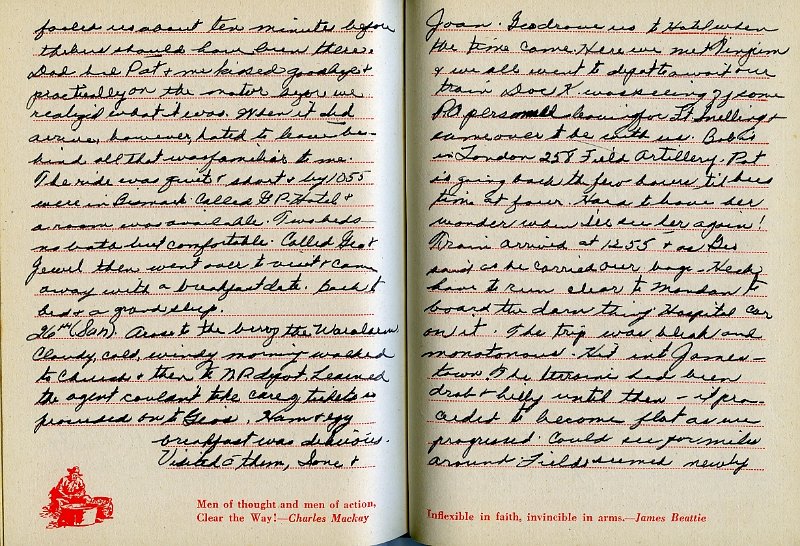 fooled us about ten minutes before
the bus should have been there.
Dad had Pat & me kissed goodbye &
practically on the motor before we
realized what it was. When it did
arrive, however, hated to leave be-
hind all that was familiar to me.
The ride was quiet & short & by 1055
were in Bismark. Called G.P. Hotel &
a room was available. Two beds
no bath but comfortable. Called Geo &
Jewel then went over to visit & came
away with a breakfast date. Back to
bed & a good sleep.
26th (Sun) Arose to the berrg the
Cloudy, cold, windy morning walked
to Church & then to N.P. depot. Learned
the agent couldn't take care of tickets so
proceeded on to Geos. Ham & egg
breakfast was delicious.
Visited c̄ them, Sone &
Men of thought and men of action,
Clear the Way!—Charles Mackay
Joan. Geo drove us to Hotel when
the time came. Here we met
& we all went to depot to await our
train. Doc K was seeing off some
personell leaving for Ft. Snelling &
someone to be with us. Bob is
in London 258 Field Artillery. Pat
is going back the few hours 'til bus
time at four. Hard to have her
wonder when I'll see her again!
Train arrived at 1255 & as Geo
said as he carried our bags - Heck,
have to run clear to Mandan to
board the darn thing. Hospital car
on it. The trip was bleak and
monotonous. Hit into James-
town. The terrain has been
drab & hilly until then - it pro-
ceeded to become flat as we
progressed. Could see for miles
around. Fields seemed newly
Inflexible in faith, invincible in arms.—James Beattie